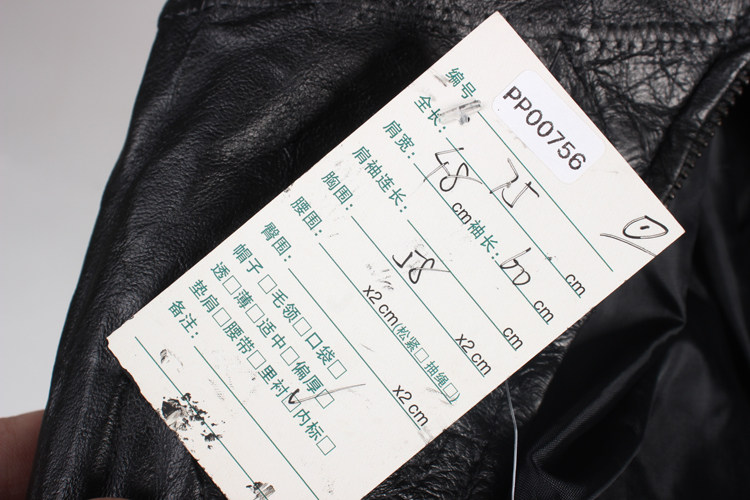 编号
PP00756
全长: 75 cm
肩宽: 48 cm 袖长: 60 cm
肩袖连长: cm
胸围: 58 x2 cm
腰围: x2 cm (松紧□ 抽绳□)
臀围: x2 cm
帽子□毛领□口袋□
透□薄□适中□偏厚□
垫肩□腰带□里衬☑内标□
备注: